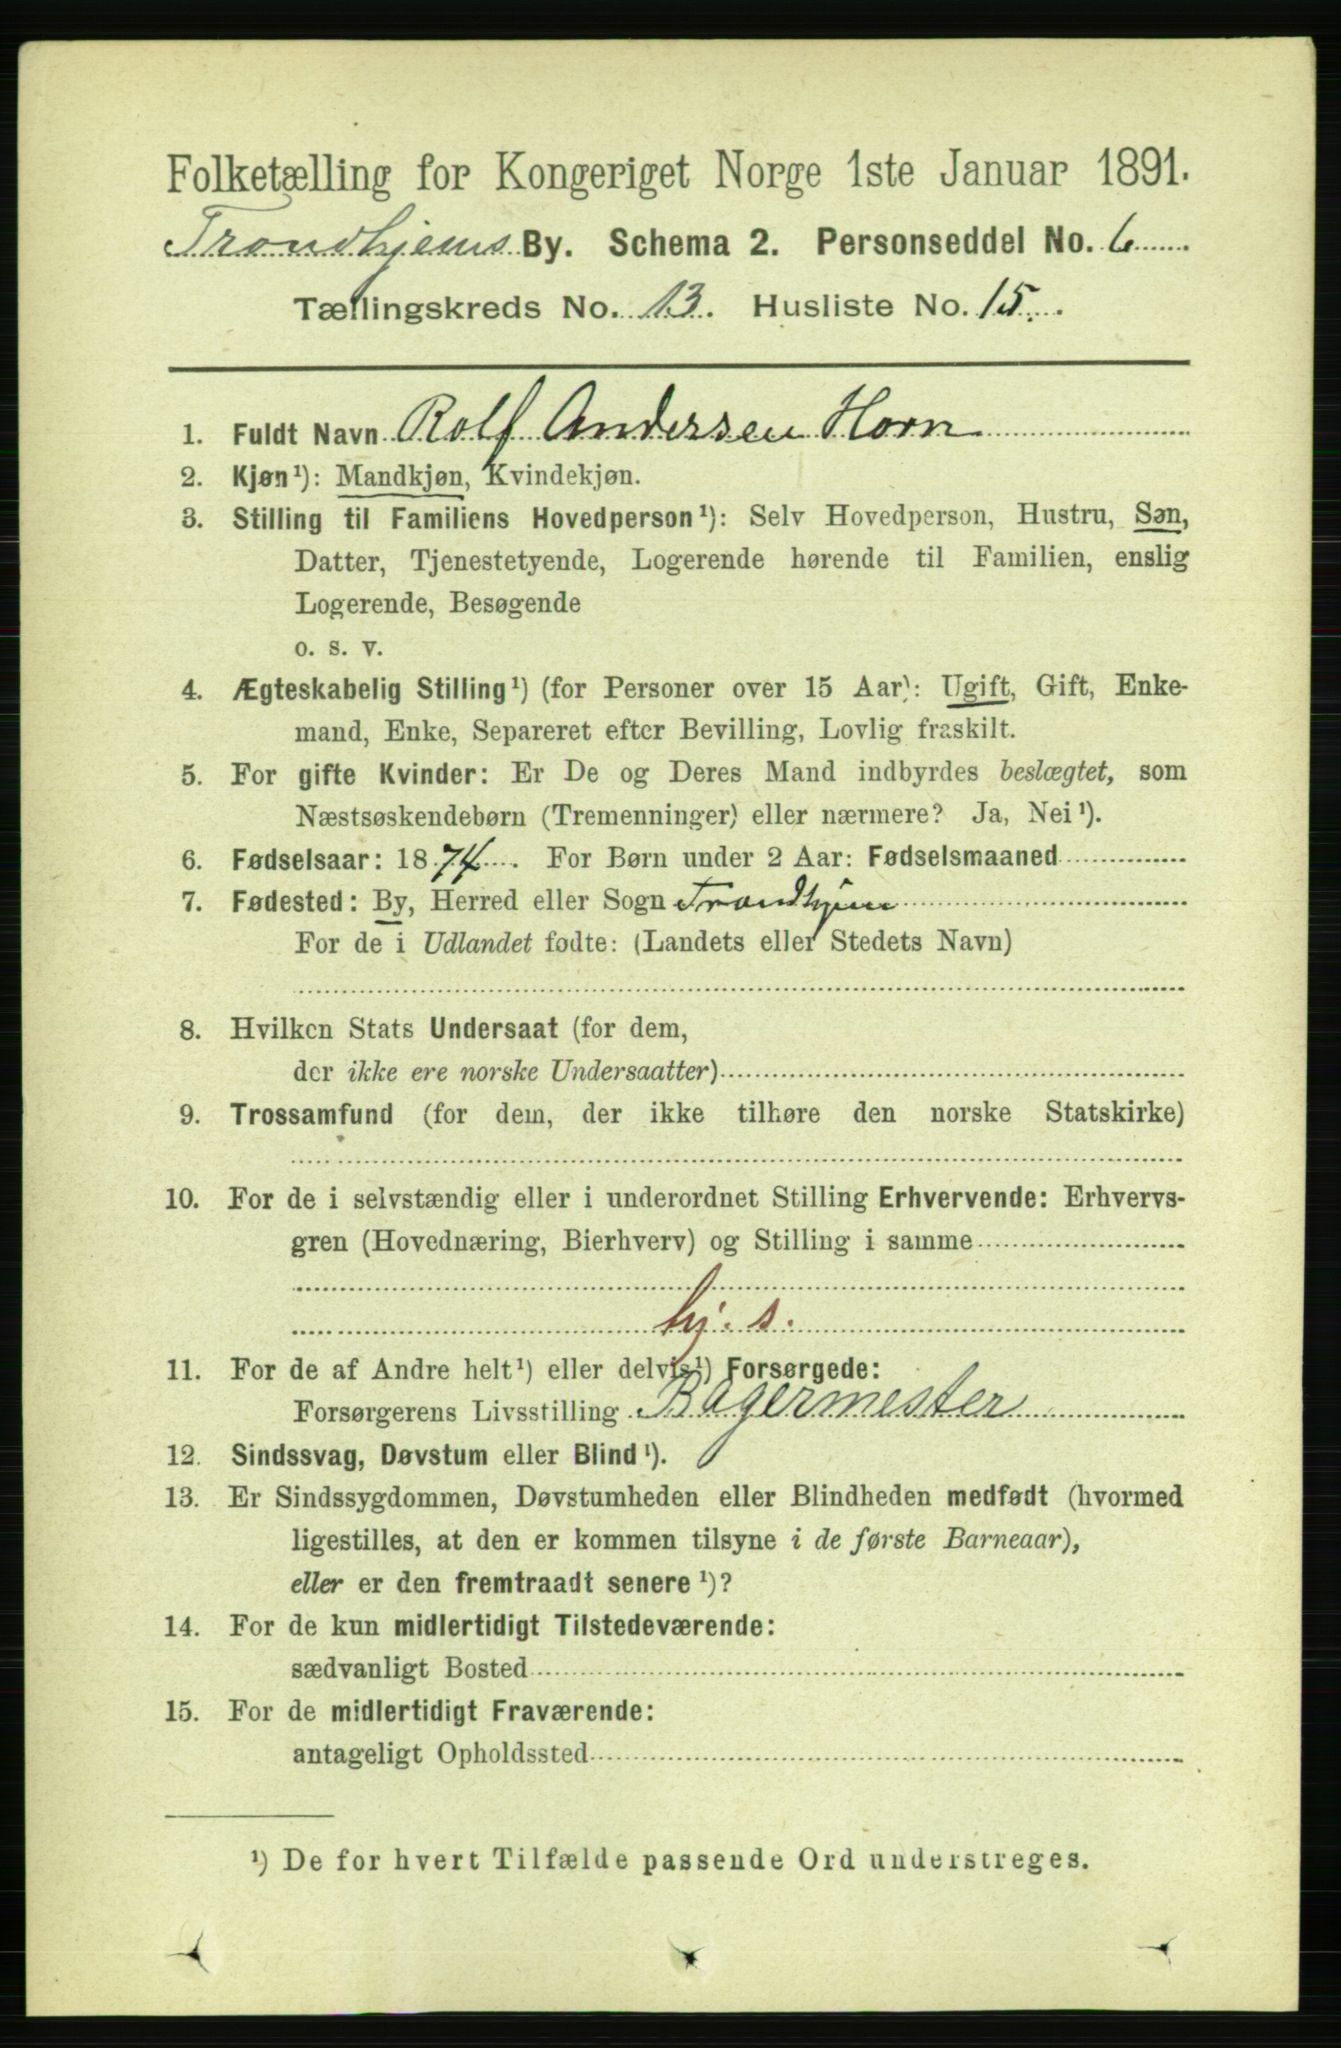 Folketælling for Kongeriget Norge 1ste Januar 1891.
Trondhjems By. Schema 2. Personseddel No. 6
Tællingskreds No. 13. Husliste No. 15.
1. Fuldt Navn Rolf Andersen Horn
2. Kjøn¹): Mandkjøn, Kvindekjøn.
3. Stilling til Familiens Hovedperson¹): Selv Hovedperson, Hustru, Søn,
Datter, Tjenestetyende, Logerende hørende til Familien, enslig
Logerende, Besøgende
o. s. v.
4. Ægteskabelig Stilling¹) (for Personer over 15 Aar): Ugift, Gift, Enke-
mand, Enke, Separeret efter Bevilling, Lovlig fraskilt.
5. For gifte Kvinder: Er De og Deres Mand indbyrdes beslægtet, som
Næstsøskendebørn (Tremenninger) eller nærmere? Ja, Nei¹).
6. Fødselsaar: 1874. For Børn under 2 Aar: Fødselsmaaned
7. Fødested: By, Herred eller Sogn Trondhjem
For de i Udlandet fødte: (Landets eller Stedets Navn)
8. Hvilken Stats Undersaat (for dem,
der ikke ere norske Undersaatter)
9. Trossamfund (for dem, der ikke tilhøre den norske Statskirke)
10. For de i selvstændig eller i underordnet Stilling Erhvervende: Erhvervs-
gren (Hovednæring, Bierhverv) og Stilling i samme
hj. s.
11. For de af Andre helt¹) eller delvis¹) Forsørgede:
Forsørgerens Livsstilling Bagermester
12. Sindssvag, Døvstum eller Blind¹).
13. Er Sindssygdommen, Døvstumheden eller Blindheden medfødt (hvormed
ligestilles, at den er kommen tilsyne i de første Barneaar),
eller er den fremtraadt senere¹)?
14. For de kun midlertidigt Tilstedeværende:
sædvanligt Bosted
15. For de midlertidigt Fraværende:
antageligt Opholdssted
¹) De for hvert Tilfælde passende Ord understreges.